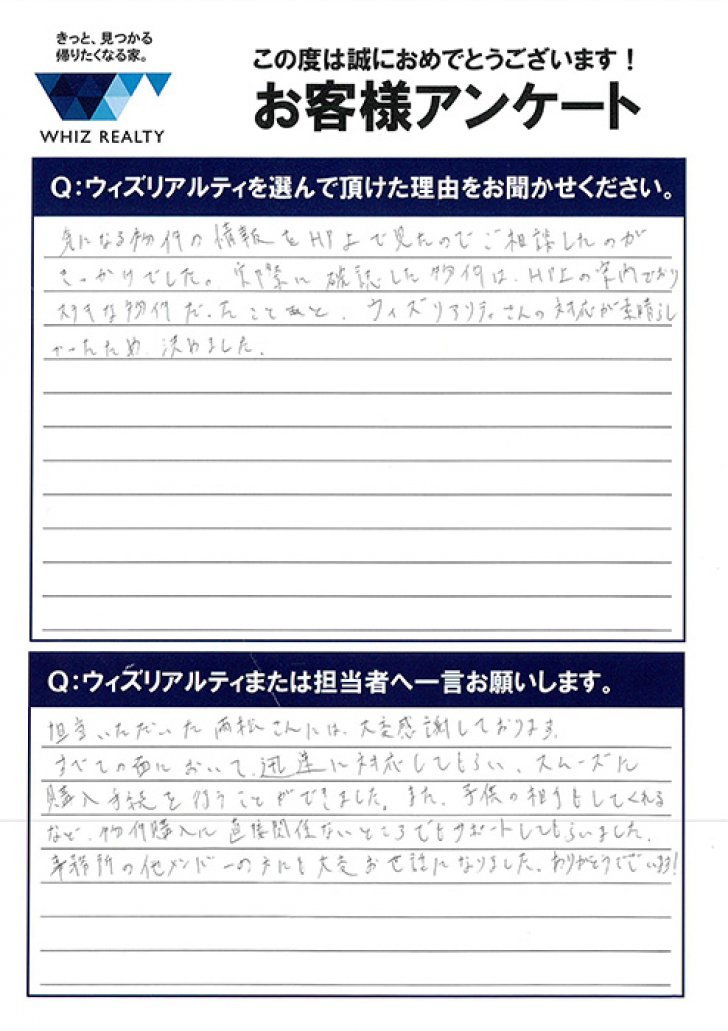 きっと、見つかる
帰りたくなる家。
WHIZ REALTY
この度は誠におめでとうございます！
お客様アンケート
Q：ウィズリアルティを選んで頂けた理由をお聞かせください。
気になる物件の情報をHP上で見たのでご相談したのが
きっかけでした。実際に確認した物件は、HP上の案内どおり
好きな物件だったことと、ウィズリアリティさんの対応が素晴らし
かったため、決めました。
Q：ウィズリアルティまたは担当者へ一言お願いします。
担当いただいた両松さんには、大変感謝しております。
すべての面において、迅速に対応してもらい、スムーズに
購入手続を行うことができました。また、子供の相手もしてくれる
など、物件購入に直接関係ないところでもサポートしてもらいました。
事務所の他メンバーの方にも大変お世話になりました。ありがとうございます！